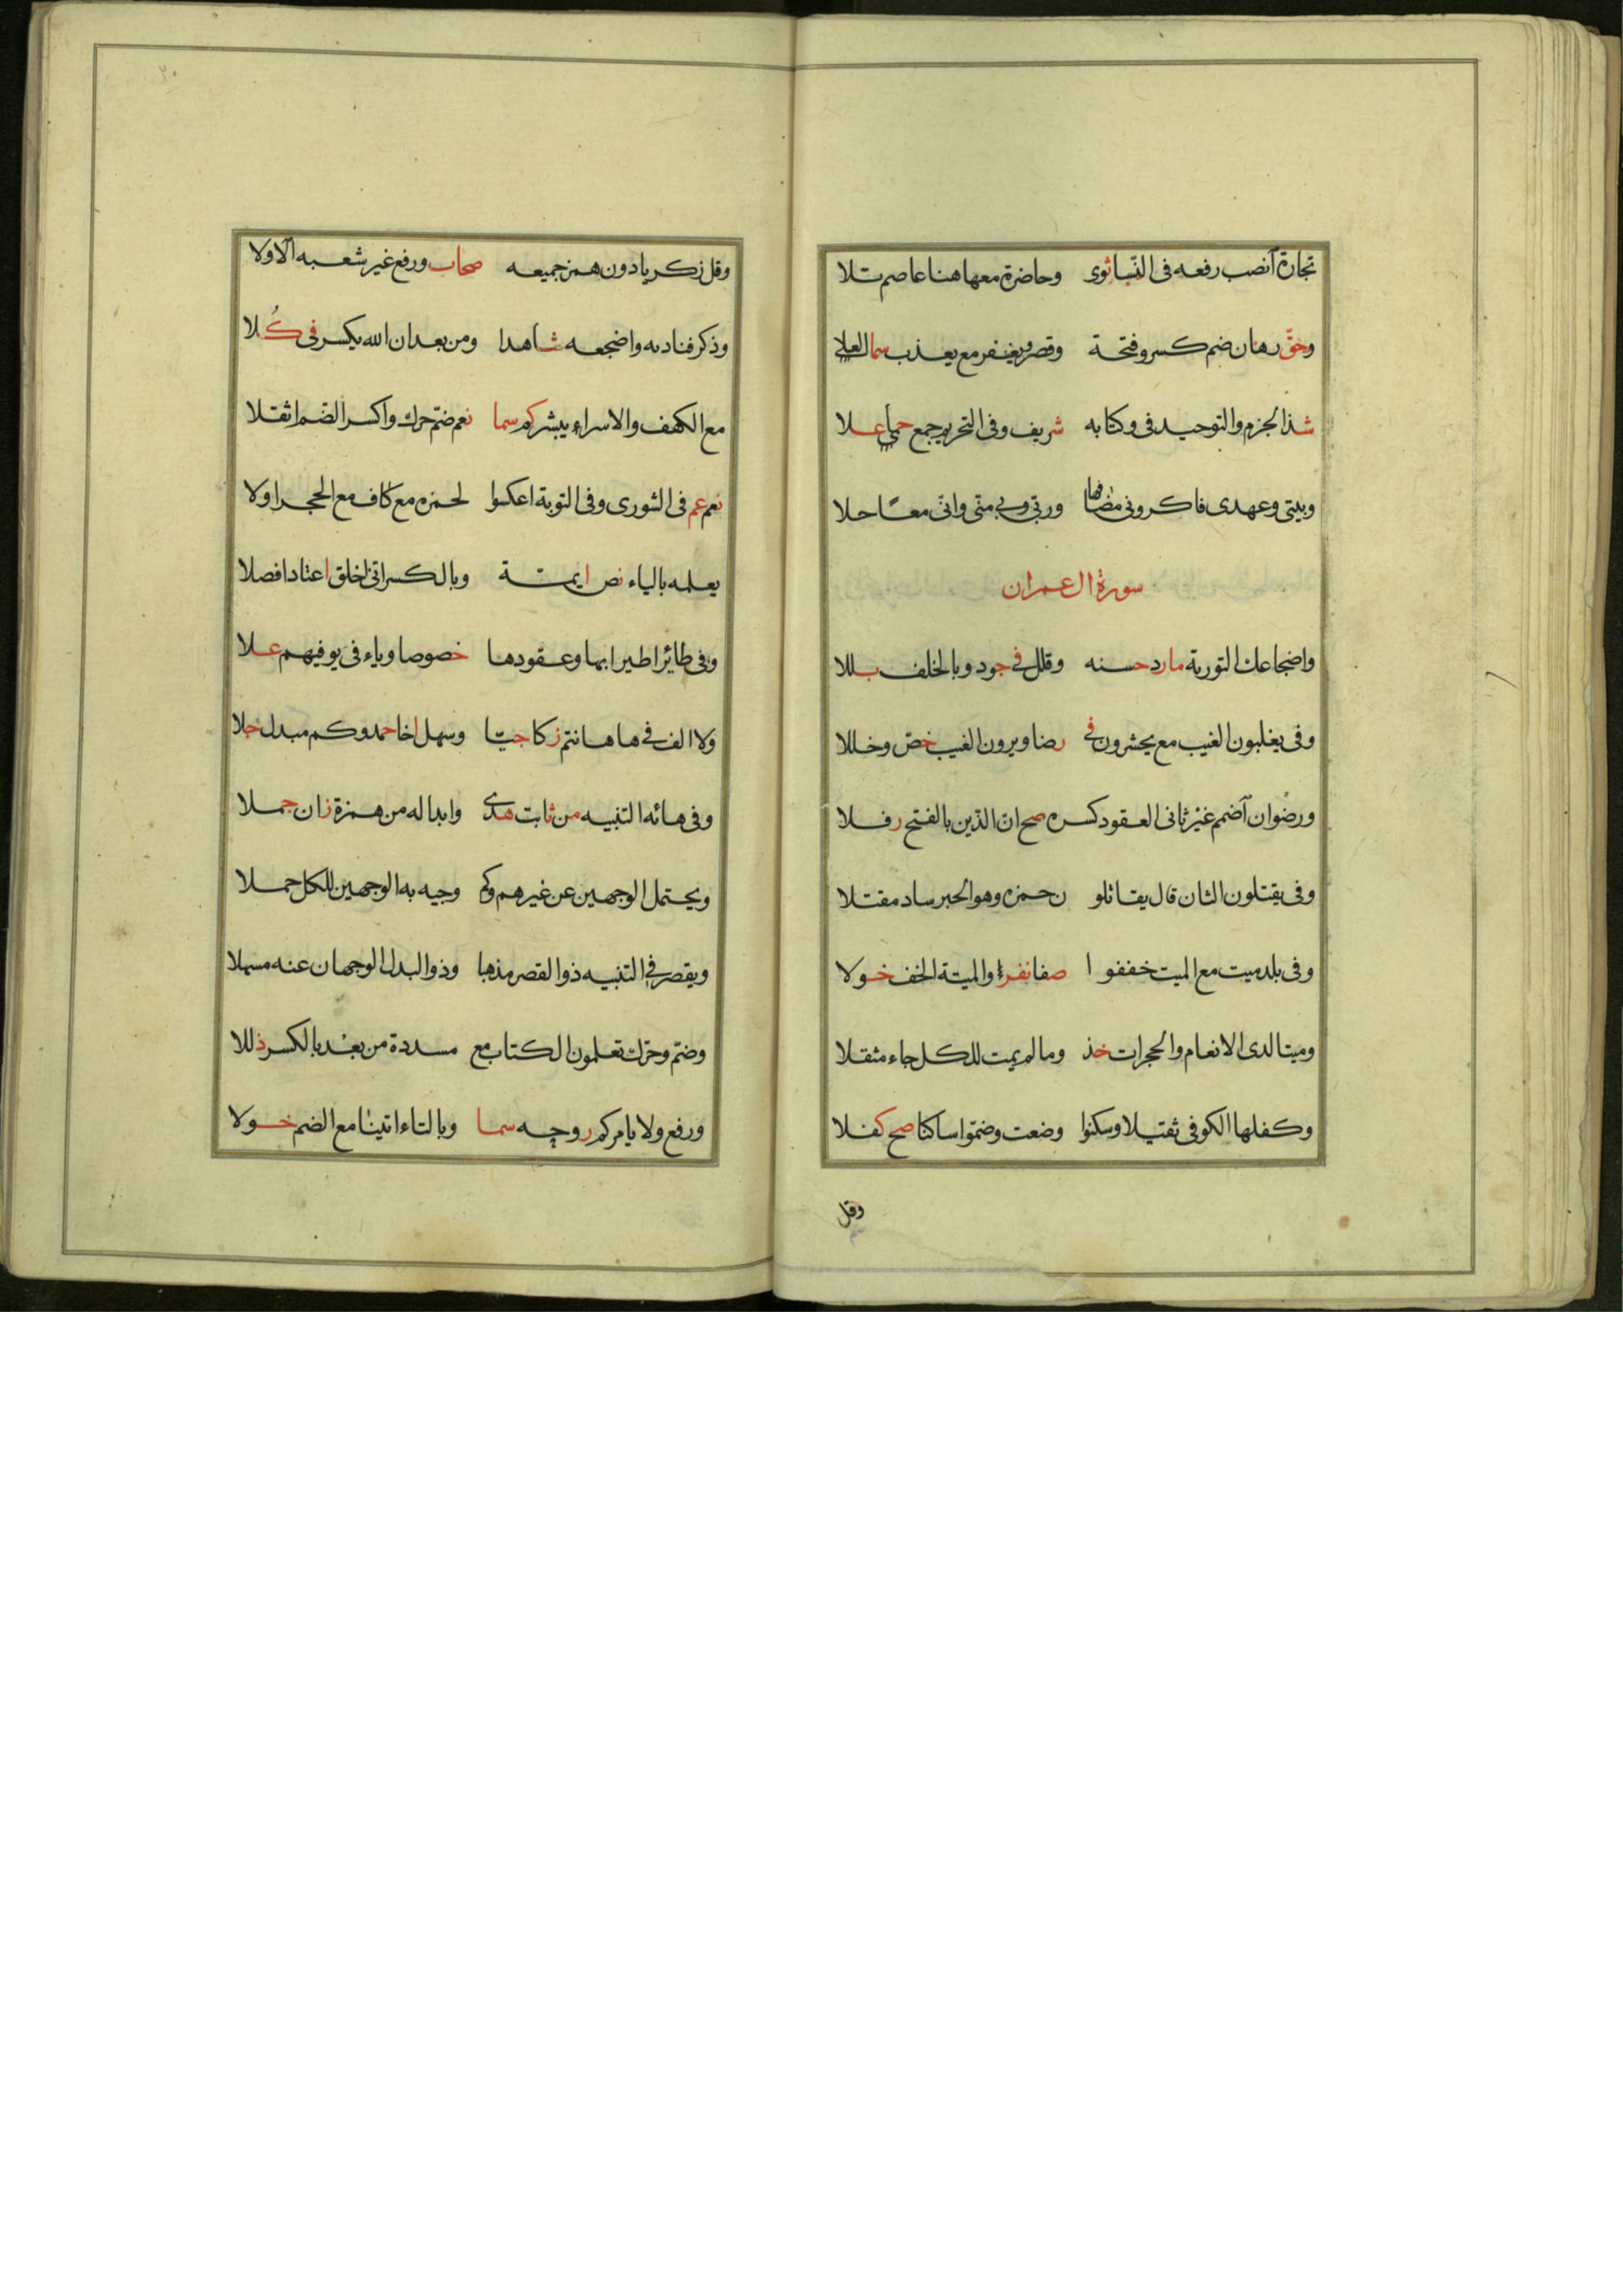 تجارة انصب رفعه فى النسا ثوى وحاضرة معها هنا عاصم تلا
وحق رهان ضم كسر وفتحة وقصر ويغفر مع يعذب سما العلى
شذا الجزم والتوحيد فى وكتابه شريف وفى التحريم جمع حمى علا
وبيتى وعهدى فاذكرونى مضافها وربى وبى منى وانى معا حلا
سورة ال عمران
واضجاعك التورية ما رد حسنه وقلل فى جود وبالخلف بللا
وفى يغلبون الغيب مع يحشرون فى رضا ويرون الغيب خص وخللا
ورضوان اضمم غير ثانى العقود كسره صح ان الدين بالفتح رفلا
وفى يقتلون الثان قال يقاتلو ن حمزه وهو الحبر ساد مقتلا
وفى بلد ميت مع الميت خففوا صفا نفرا والميتة الخف خولا
وميتا لدى الانعام والحجرات خذ وما لم يمت للكل جاء مثقلا
وكفلها الكوفى ثقيلا وسكنوا وضعت وضموا ساكنا صح كفلا
وقل
٣٠
وقل زكريا دون همز جميعه صحاب ورفع غير شعبه الاولا
وذكر فناديه واضجعه شاهدا ومن بعد ان الله يكسر فى كلا
مع الكهف والاسراء يبشركم سما نعم ضم حرك واكسر الضم اثقلا
نعم عم فى الشورى وفى التوبة اعكسوا لحمزه مع كاف مع الحجر اولا
يعلمه بالياء نص ايمة وبالكسر انى اخلق اعتاد افصلا
وفى طائرا طيرا بها وعقودها خصوصا وياء فى يوفيهم علا
ولا الف فى ها هانتم زكا جنا وسهل اخا حمد وكم مبدل جلا
وفى هائه التنبيه من ثابت هدى وابداله من همزة زان جملا
ويحتمل الوجهين عن غيرهم وكم وجيه به الوجهين للكل حملا
ويقصر فى التنبيه ذو القصر مذهبا وذو البدل الوجهان عنه مسهلا
وضم وحرك تعلمون الكتاب مع مسددة من بعد بالكسر ذللا
ورفع ولا يامركم روحه سما وبالتاء اتينا مع الضم خولا